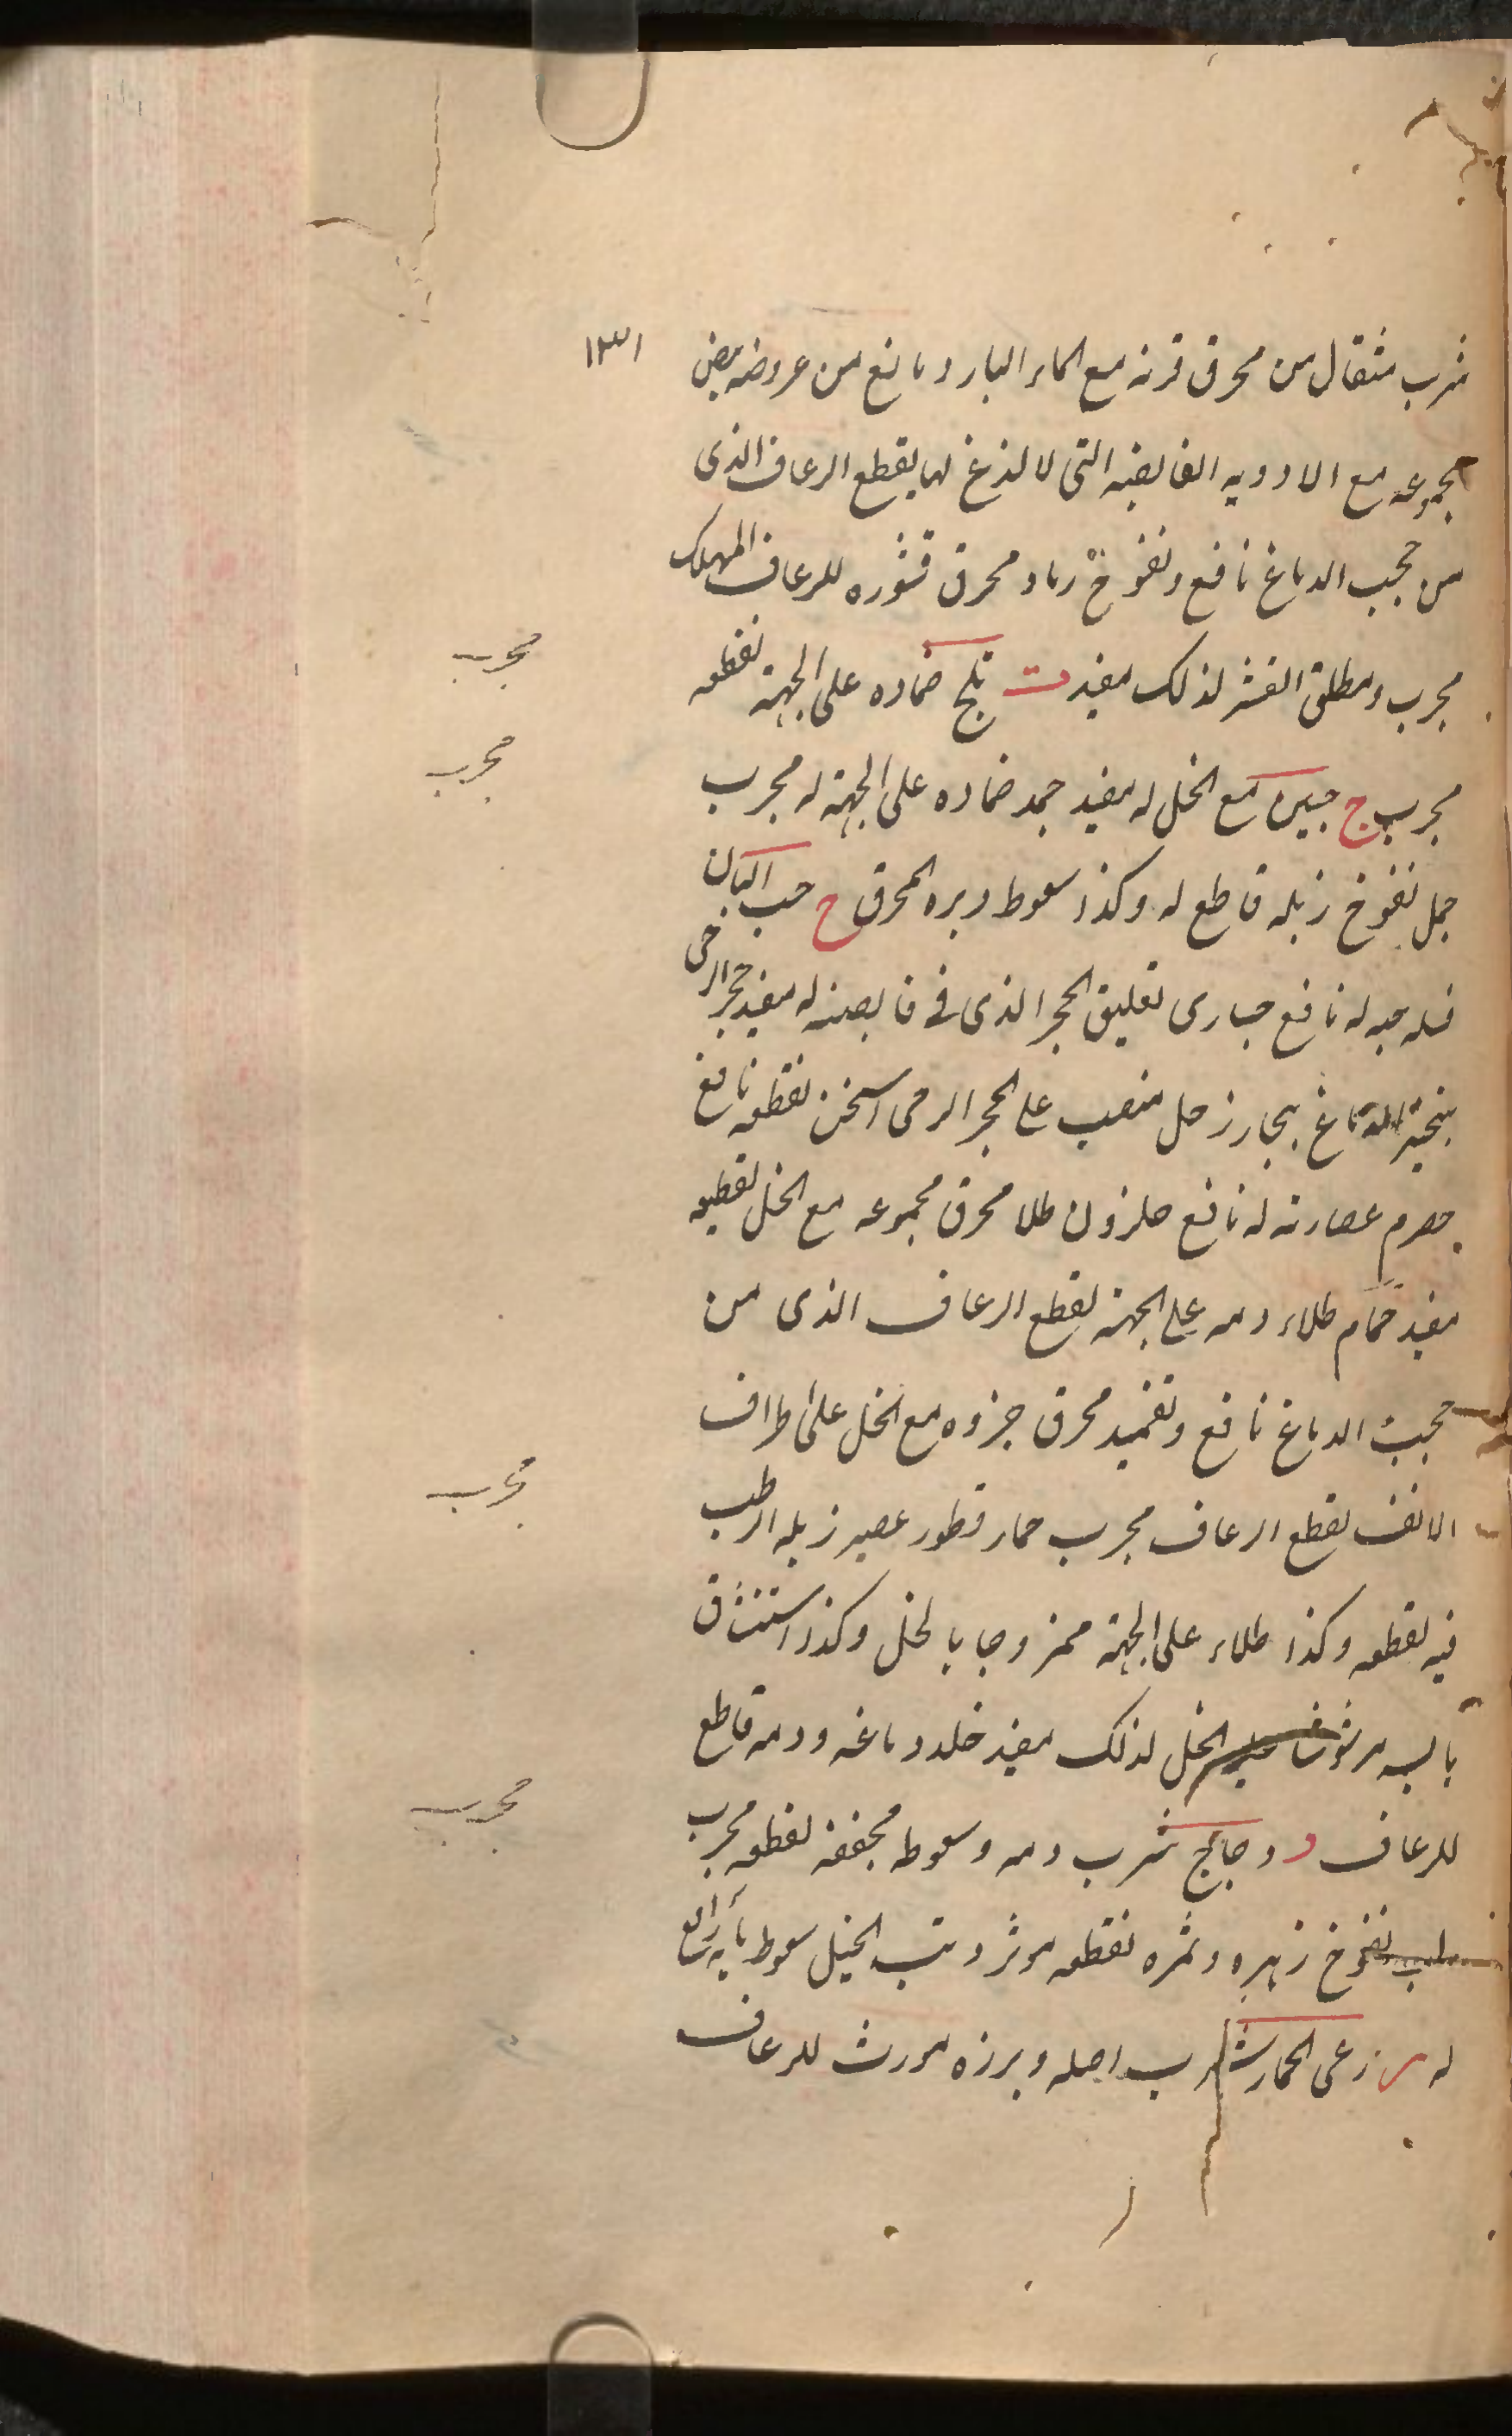 ١٣١
شرب مثقال من محرق قرنه مع الماء البارد مانع من عروضه بيض
مجموعه مع الادويه القابضه التى لا لذغ لها يقطع الرعاف الذى
من حجب الدماغ نافع ونفوخ رماد محرق قشوره للرعاف المهلك
مجرب ومطلق القشر لذلك مفيد ث ثلج ضماده على الجبهة يقطعه
مجرب
مجرب ج جبين مع الخل له مفيد جمد ضماده على الجبهة له مجرب
مجرب
جمل نفوخ زبله قاطع له وكذا سعوط وبره المحرق ح حب البان
له نافع حبارى تعليق الحجر الذى فى قابضته له مفيد حجر الرحى
الدماغ ببخار خل منصب على الحجر الرحى اسخن يقطعه نافع
حصرم عصارته له نافع حلزون طلا محرق مجموعه مع الخل يقطعه
مفيد حمام طلاء دمه على الجبهة يقطع الرعاف الذى من
حجب الدماغ نافع وتضميد محرق جزوه مع الخل على اطراف
الانف يقطع الرعاف مجرب حمار قطور عصير زبله الرطب
مجرب
فيه يقطعه وكذا طلاء على الجبهة ممزوجا بالخل وكذا استنشاق
يابسه مرشوشا الخل لذلك مفيد خلد دماغه ودمه قاطع
للرعاف د دجاج شرب دمه وسعوط مجففه يقطعه مجرب
مجرب
نفوخ زهره وثمره يقطعه موثر ذنب الخيل سعوط مائه رافع
له ر رعى الحمار شرب اصله وبرزه مورث للرعاف